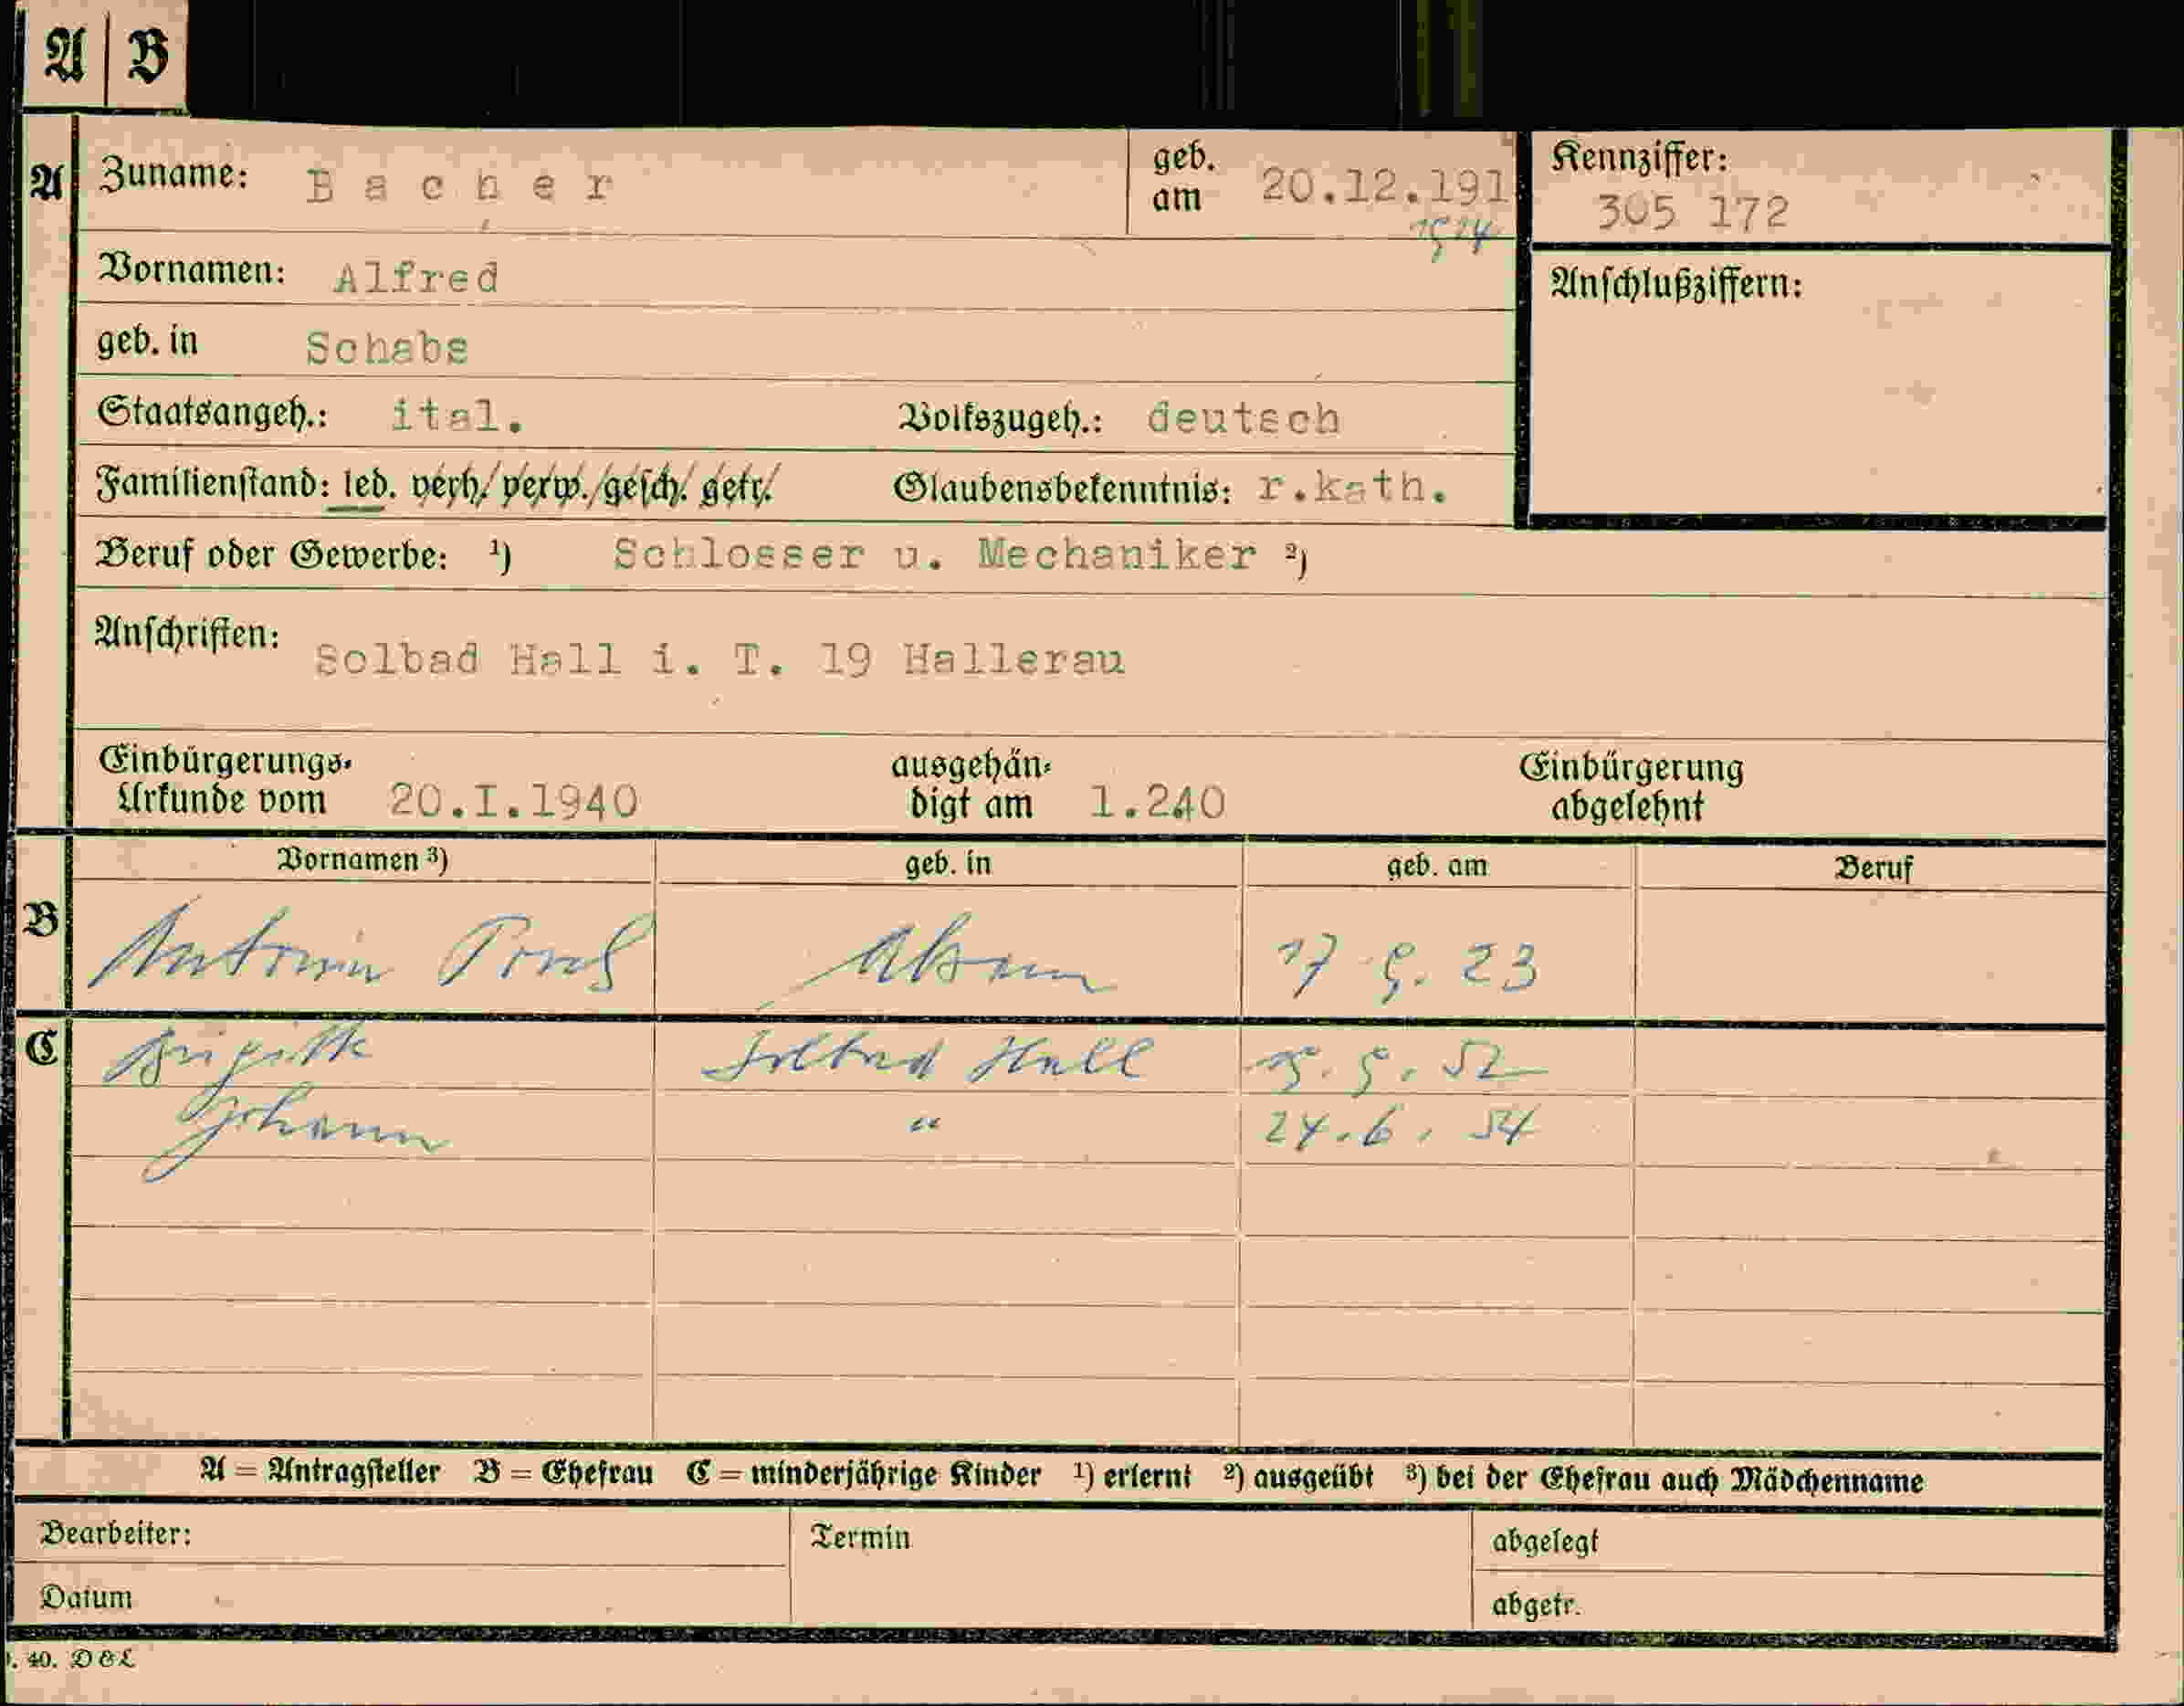 A | B
A Zuname: Bacher geb. am 20.12.191 Kennziffer: 305 172
1914
Vornamen: Alfred Anschlußziffern:
geb. in Schabs
Staatsangeh.: ital. Volkszugeh.: deutsch
Familienstand: led. verh./verw./gesch./getr. Glaubensbekenntnis: r.kath.
Beruf oder Gewerbe: ¹) Schlosser u. Mechaniker ²)
Anschriften: Solbad Hall i. T. 19 Hallerau
Einbürgerungs-Urkunde vom 20.I.1940 ausgehändigt am 1.2.40 Einbürgerung abgelehnt
Vornamen ³) geb. in geb. am Beruf
B Antonia Absam 23
C Brigitte Solbad Hall 52
Johann " 24.6.54
A = Antragsteller B = Ehefrau C = minderjährige Kinder ¹) erlernt ²) ausgeübt ³) bei der Ehefrau auch Mädchenname
Bearbeiter: Termin abgelegt
Datum abgetr.
40. D&L